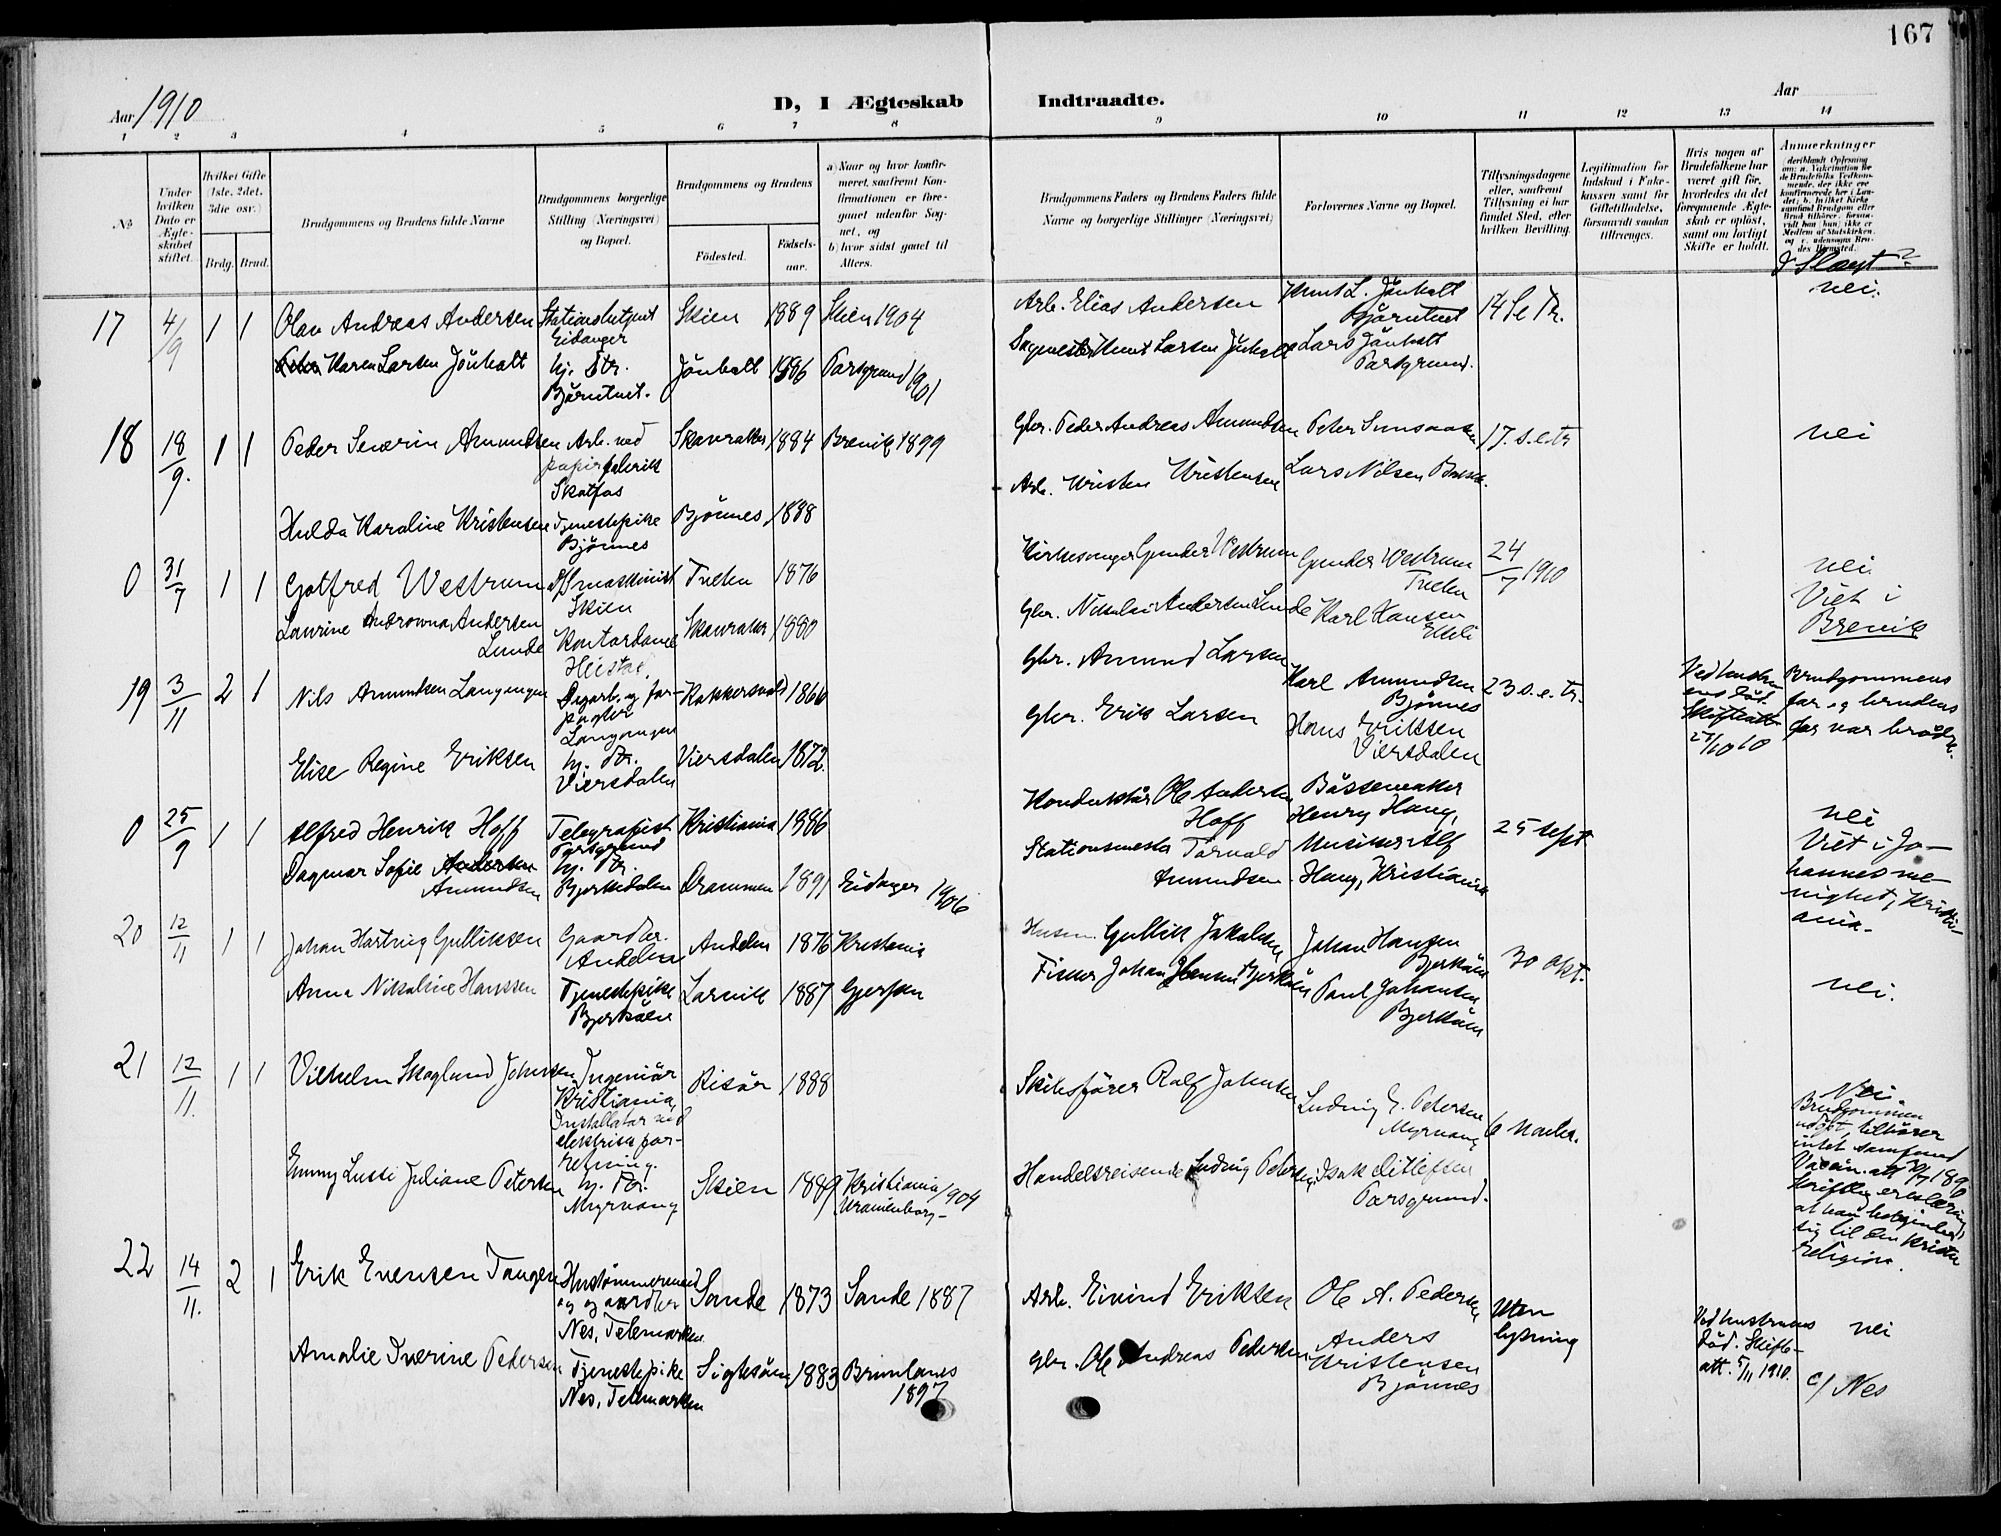 167
Aar 1910
D, I Ægteskab Indtraadte.
Aar
1 2 3 4 5 6 7 8 9 10 11 12 13 14
No
Under hvilken Dato er Ægteskabet stiftet.
Hvilket Gifte (1ste, 2det, 3die osv.)
Brdg. Brud.
Brudgommens og Brudens fulde Navne
Brudgommens borgerlige Stilling (Næringsvei) og Bopæl.
Brudgommens og Brudens
Födested.
Födselsaar.
a) Naar og hvor konfirmeret, saafremt Konfirmationen er foregaaet udenfor Sognet, og
b) hvor sidst gaaet til Alters.
Brudgommens Faders og Brudens Faders fulde Navne og borgerlige Stillinger (Næringsvei)
Forlovernes Navne og Bopæl.
Tillysningsdagene eller, saafremt Tillysning ei har fundet Sted, efter hvilken Bevilling.
Legitimation for Indskud i Enkekassen samt for Giftetilladelse, forsaavidt saadan tiltrænges.
Hvis nogen af Brudefolkene har været gift før, hvorledes da det foregaaende Ægteskab er opløst, samt om lovligt Skifte er holdt.
Anmærkninger
I Slægt?
17 4/9 1 1 Olav Andreas Andersen Stationsbetjent Eidanger Skien 1889 Skien 1904
Arb. Elias Andersen Knut L. Jönholt Bjørntvet 14 S e Tr. nei.
Karen Larsen Jönholt hj. Dtr. Bjørntvet. Jönholt 1886 Porsgrund 1901
Knut Larsen Jönholt Lars Jönholt Porsgrund.
18 18/9. 1 1 Peder Severin Amundsen Arb. ved papirfabrik Skotfos 1884 Brevik 1899
Gbr. Peder Andreas Amundsen Peter 17. s. e. tr nei
Hulda Karoline Kristensen Tjenestepike Bjönnes Bjönnes 1888
Arb. Kristen Kristensen Lars Nilsen
0 31/7 1 1 Gotfred Westrum D/S maskinist Skien Treken 1876
Kirkesanger Gunder Westrum Gunder Westrum 24/7 1910 nei.
Laurine Andersen Lunde Kontordame Heistad 1880
Gbr. Nikolai Andersen Lunde Karl Hansen Viet i Brevik
19 3/11 2 1 Nils Amundsen Langangen Dagarb. og Langangen 1866
Gbr. Amund Larsen Karl Amundsen Bjönnes 23 s. e. tr. Ved hustruens død. Skifteatt. 27/10 10 Brudgommens far og brudens far var brødre.
Elise Regine Eriksen hj. Dtr. Viersdalen Viersdalen 1872.
Gbr. Erik Larsen Hans Eriksen Viersdalen
0 25/9 1 1 Alfred Henrik Hoff Telegrafist Porsgrund Kristiania 1886
Konduktör Ole Andersen Hoff Bössemaker Henry Haug, 25 sept nei
Dagmar Sofie Andersen Amundsen hj. Dtr. Bjerkedalen Drammen 1891 Eidanger 1906
Stationsmester Torvald Amundsen Musiker Alf Haug, Kristiania Viet i Johannes menighet, Kristiania.
20 12/11 1 1 Johan Hartvig Gulliksen Gaardbr. Aukelen 1876 Kristiania
Gullik Jakobsen Johan Hansen 30 okt. nei.
Anna Nikoline Hanssen Tjenestepike Larvik 1887 Gjerpen
Fisker Johan Hansen Paul Johansen
21 12/11. 1 1 Vilhelm Skoglund Johnsen Ingeniör Kristiania, Installatör ved elektrisk forretning. Risör 1888
Skibsförer Rolf Johnsen Ludvig E. Petersen Myrvang 6 novbr. Nei.
Brudgommen udøpt, tilhører intet samfund Vaccin. att. 1890 Skriftlig erklæring at han bekjender sig til den kristne religion.
Emmy Lussi Juliane Petersen hj. Dtr. Myrvang Skien 1889 Kristiania Uranienborg 1904
Handelsreisende Ludvig Petersen Isak Ditlefsen Porsgrund.
22 14/11. 2 1 Erik Evensen Tangen Hustömmermand og gaardbr Nes, Telemarken Sande 1873 Sande 1887
Arb. Eivind Eriksen Ole A. Pedersen Uten lysning Ved hustruens död. Skifteatt. 5/11 1910. nei
Amalie Iverine Pedersen Tjenestepike Nes, Telemarken 1883 Brunlanes 1897
Gbr. Ole Andreas Pedersen Anders Kristensen Bjönnes c/ Nes